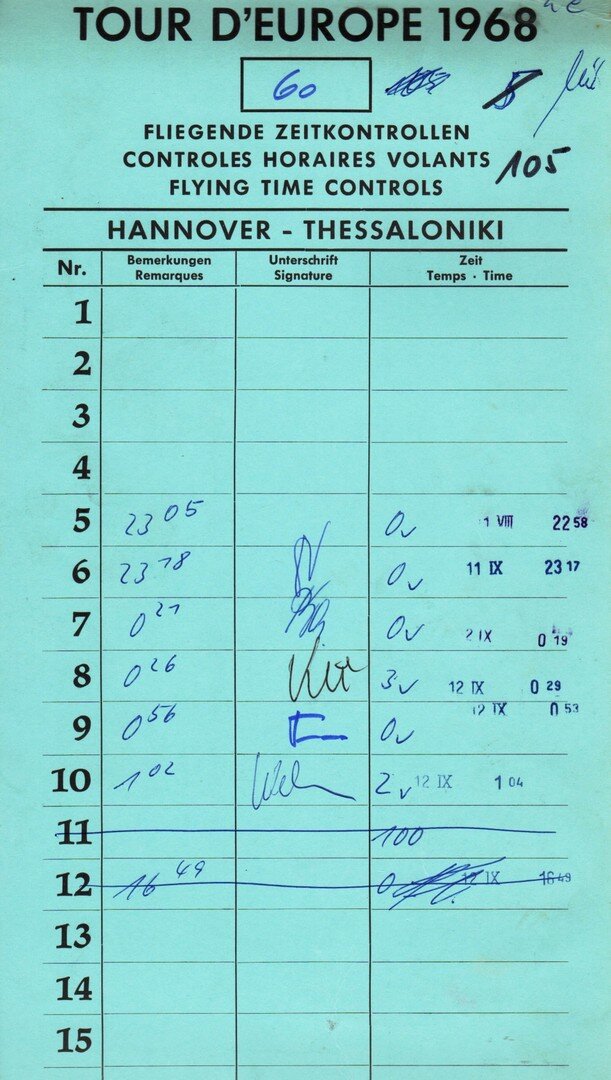 TOUR D'EUROPE 1968
60
8
105
FLIEGENDE ZEITKONTROLLEN
CONTROLES HORAIRES VOLANTS
FLYING TIME CONTROLS
HANNOVER - THESSALONIKI
Nr. Bemerkungen Remarques Unterschrift Signature Zeit Temps · Time
1
2
3
4
5 23 05 0v 1 VIII 22 58
6 23 18 0v 11 IX 23 17
7 0 21 0v 2 IX 0 19
8 0 26 3v 12 IX 0 29
9 0 56 0v 12 IX 0 53
10 1 02 2v 12 IX 1 04
11 100
12 16 49 0 12 IX 16 49
13
14
15